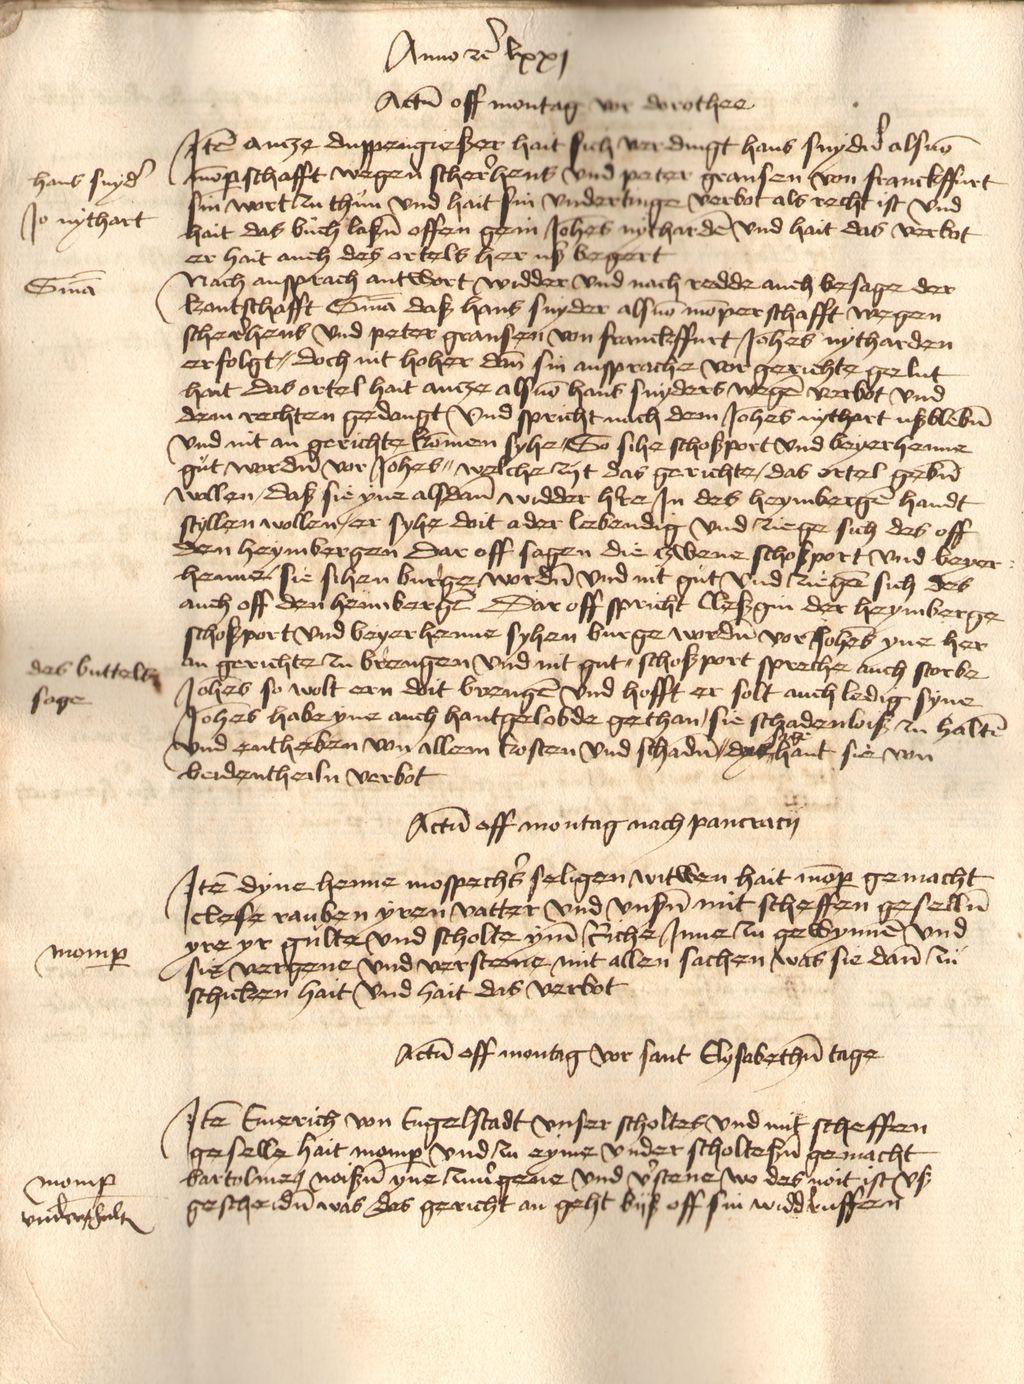 Anno etc̃ lxxj
Actũ off montag vor dorothee
Itẽ antze duppengießer hait sich verdingt hans snydˀ alsuõ
hans snydˀ
momp̱schafft wegen scherhens vnd peter gransen von franckffurt
sin wort zu thun vnd hait sin vnderdinge verbot als recht ist vnd
Jo nythart
hait das buch lasñ offen gein Joh̃es nythardẽ vnd hait das verbot
er hait auch des ortels her uß begert
Nach ansprach antwort widder vnd nach redde auch besage der
Sñia
kontschafft Sñia daß hans snyder alsuõ mõperschafft wegen
scherhens vnd peter gransen von franckffurt Joh̃es nytharden
erfolgt / doch nit hoher dañ sin ansprache vor gerichte gelut
hait das ortel hait antze alsuõ hans snyders wegẽ verbot vnd
dem rechten gedangt vnd spricht nach dem Joh̃es nythart ußblebñ
vnd nit an gerichte komen syhe / So sihe schoßport vnd beyerhenne
gut wordñ vor Joh̃es // welche zyt das gerichte / das ortel gebñ
wollen / daß sie yne alsdañ widder hˀre Jn des heymbergẽ handt
styllen wollen / er syhe doit ader lebendig vnd ziege sich des off
den heymbergen Dar off sagen die zwene schoßport vnd beyer
henne / sie sihen burge wordñ vnd nit gut vnd ziegẽ sich des
auch off den heimbergẽ Dar off spricht cleßgin der heymberge
schoßport vnd beyerhenne syhen burge wordñ vor Joh̃es yne her
an gerichte zu brengen vnd nit gut // schoßport spreche auch storbe
des buttels
sage
Joh̃es so wolt ern doit brengẽ vnd hofft er solt auch ledig syne
Joh̃es habe yne auch hantgelobde gethan / sie schadenloiß zu haltẽ
vnd entheben von allem kosten vnd schadñ / sage hant sie von
beidentheiln verbot
Actũ off montag nach pancracij
Itẽ dyne henne mospechˀs seligen witwen hait mõp̱ gemacht
clese rauben yren vatter vnd vnsñ mit scheffen gesellñ
yre yr gulte vnd scholte ym̃ Riche Jnne zu gewynnẽ vnd
momp̱
sie vergene vnd verstene mit allen sachen was sie dañ zu
schicken hait vnd hait das verbot
Actũ off montag vor sant Elysabethñ tage
Itẽ Emerich von Engelstadt vnser scholtes vnd mit scheffen
geselle hait momp̱ vnd zu eyme vnder scholteßñ gemacht
momp̱
bartolmeꝯ noißñ yne zuuˀgene vnd vˀstene wo des noit ist vß
vnderscholt
gescheidñ was das gericht an geht biß off sin widdˀruffen